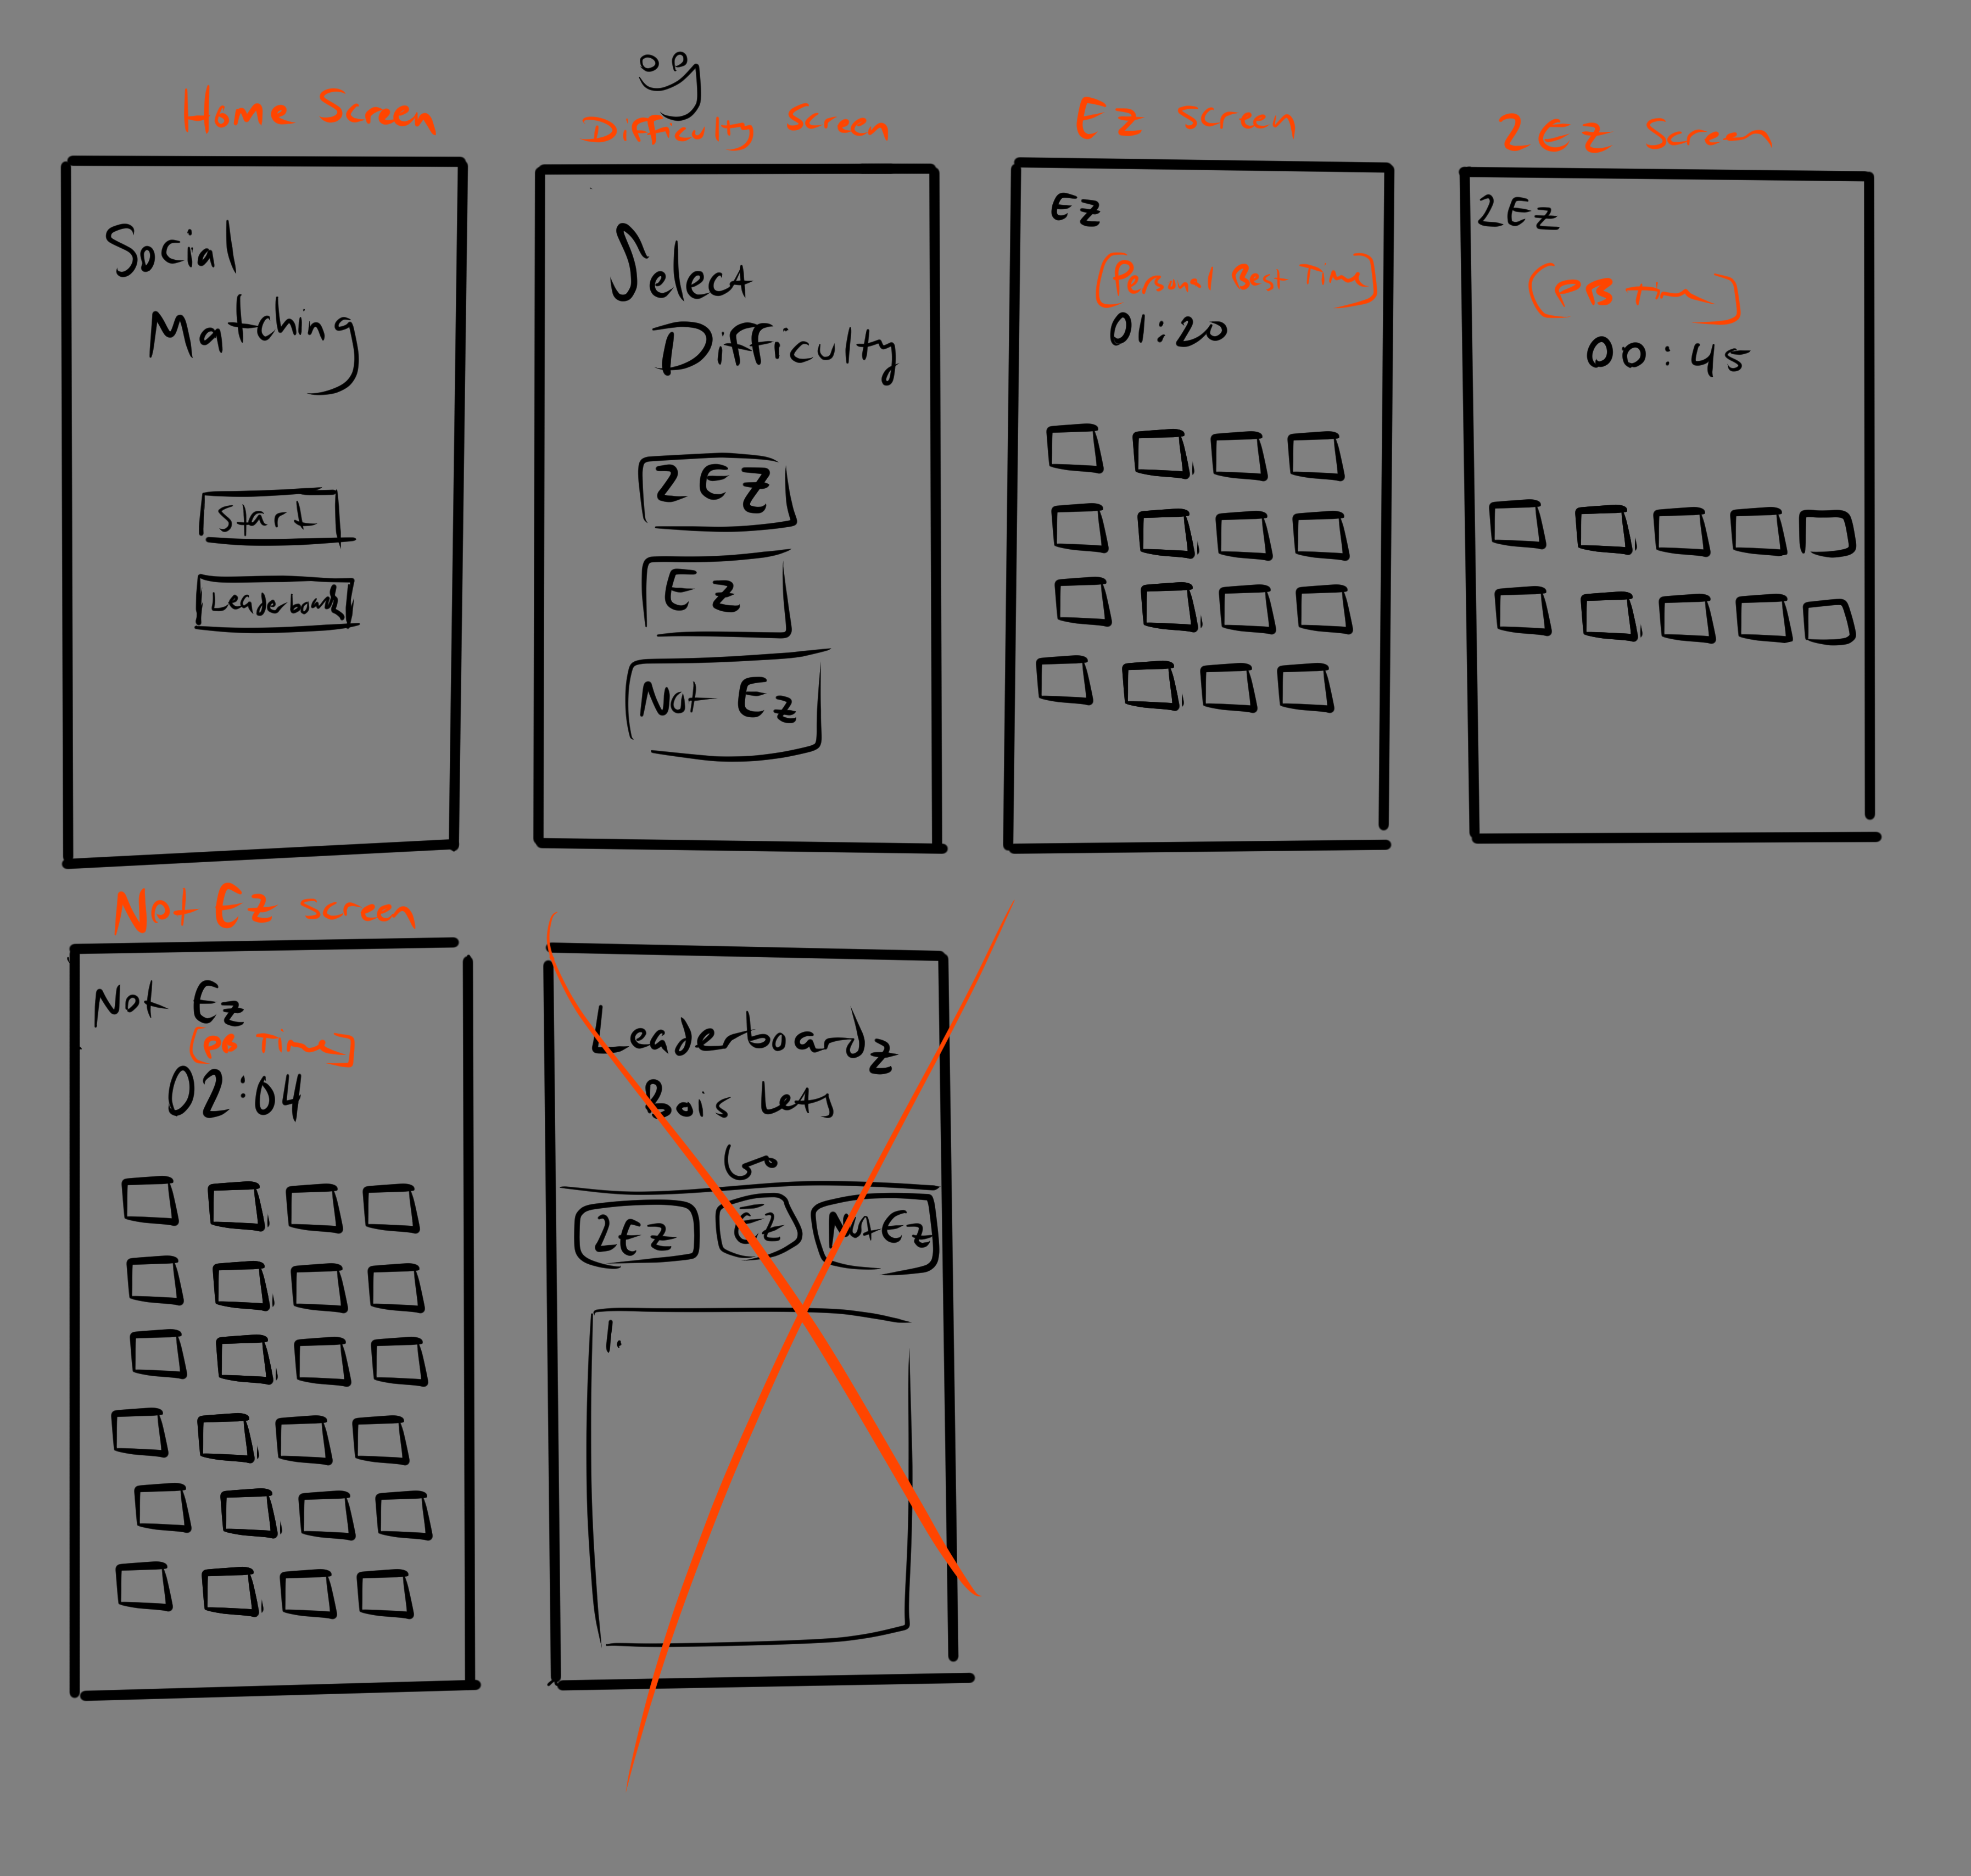 Home Screen
Social
Matching
Start
Leaderboard
Difficulty screen
Select
Difficulty
2 Ez
Ez
Not Ez
Ez screen
Ez
[Personal Best Time]
01:20
2 Ez screen
2 Ez
[PB Time]
00:45
Not Ez screen
Not Ez
[PB Time]
02:04
Leaderboardz
Bois Lets
Go
2 Ez
Ez
Not Ez
1.